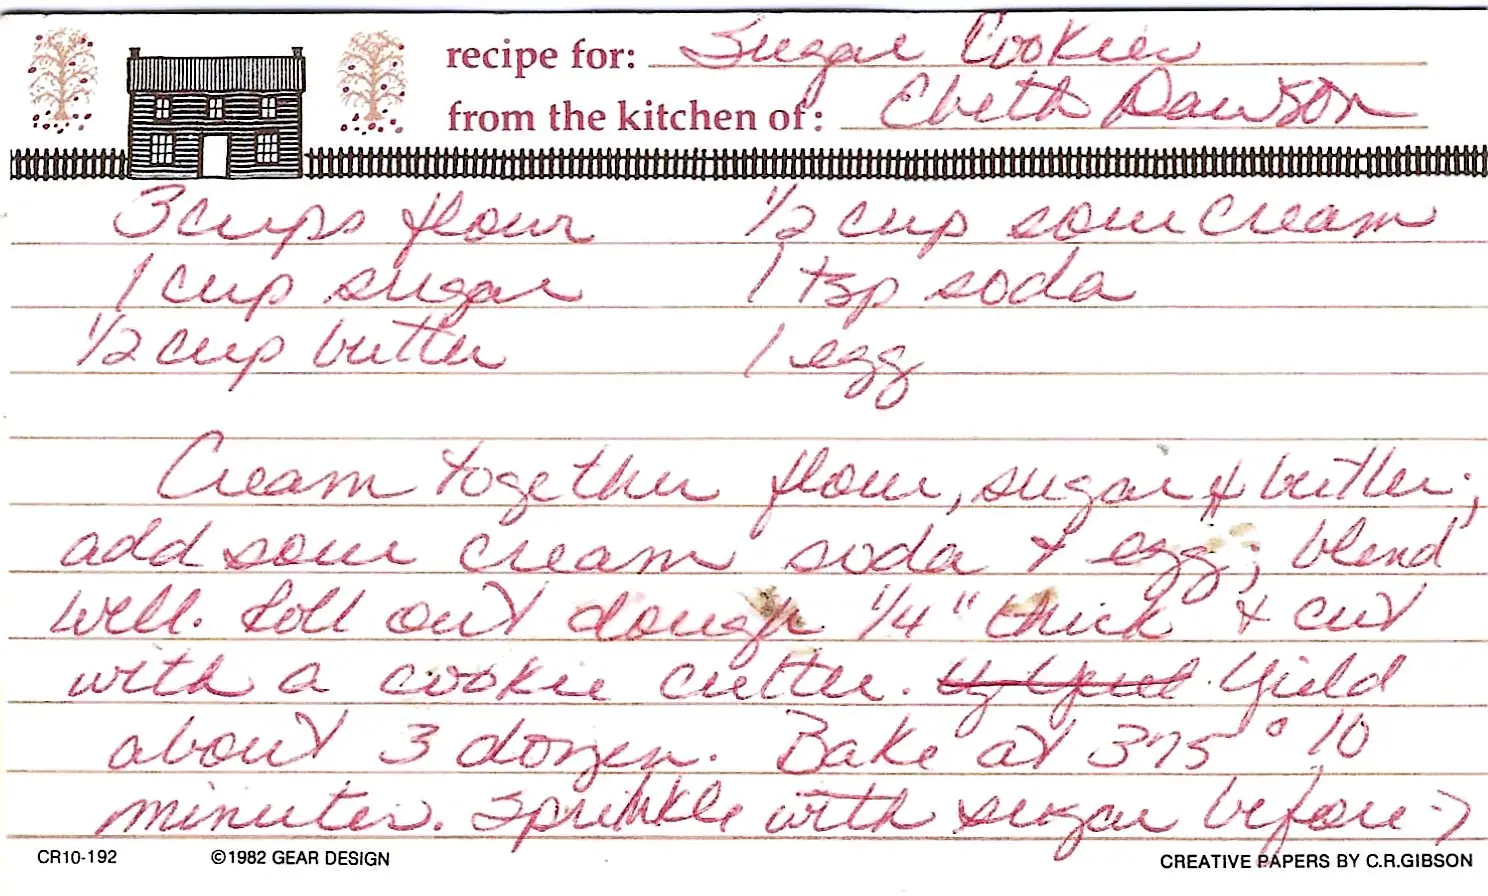 recipe for: Sugar Cookies
from the kitchen of: Ebeth Dawson
3 cups flour 1/2 cup sour cream
1 cup sugar 1 tsp soda
1/2 cup butter 1 egg
Cream together flour, sugar & butter;
add sour cream soda & egg; blend
well. Roll out dough 1/4" thick & cut
with a cookie cutter. Yield
about 3 dozen. Bake at 375° 10
minutes. Sprinkle with sugar before →
CR10-192 ©1982 GEAR DESIGN CREATIVE PAPERS BY C.R.GIBSON